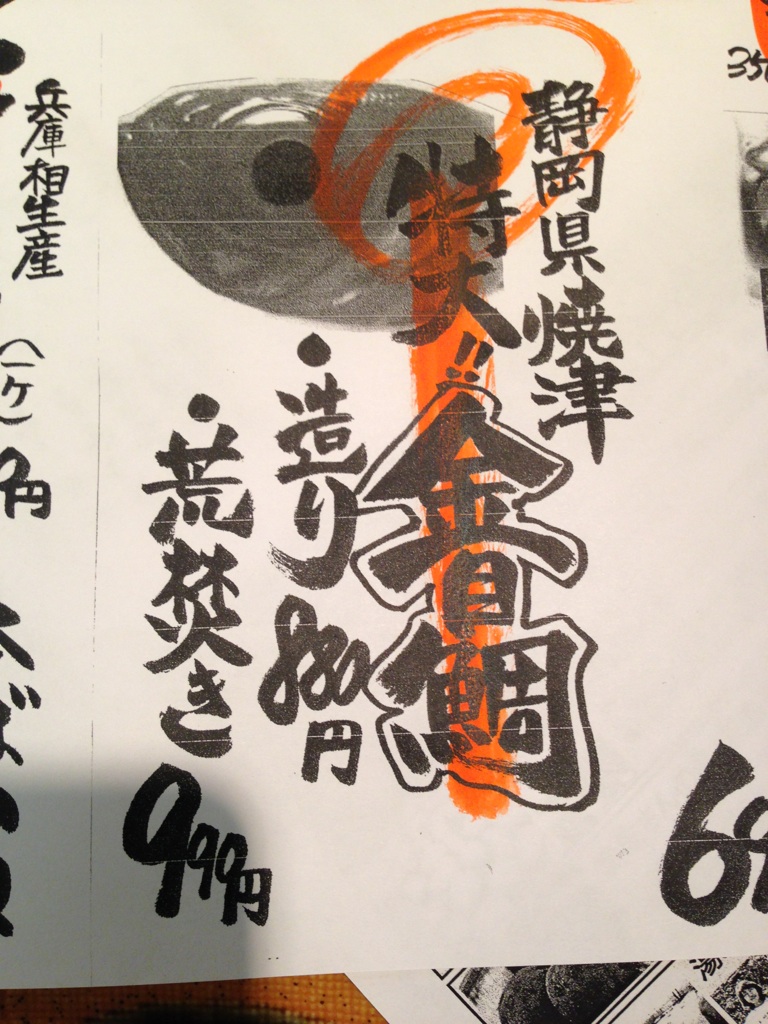 静岡県焼津
特大!!
金目鯛
・造り 880円
・荒焚き 999円
兵庫相生産
(一ケ)
円